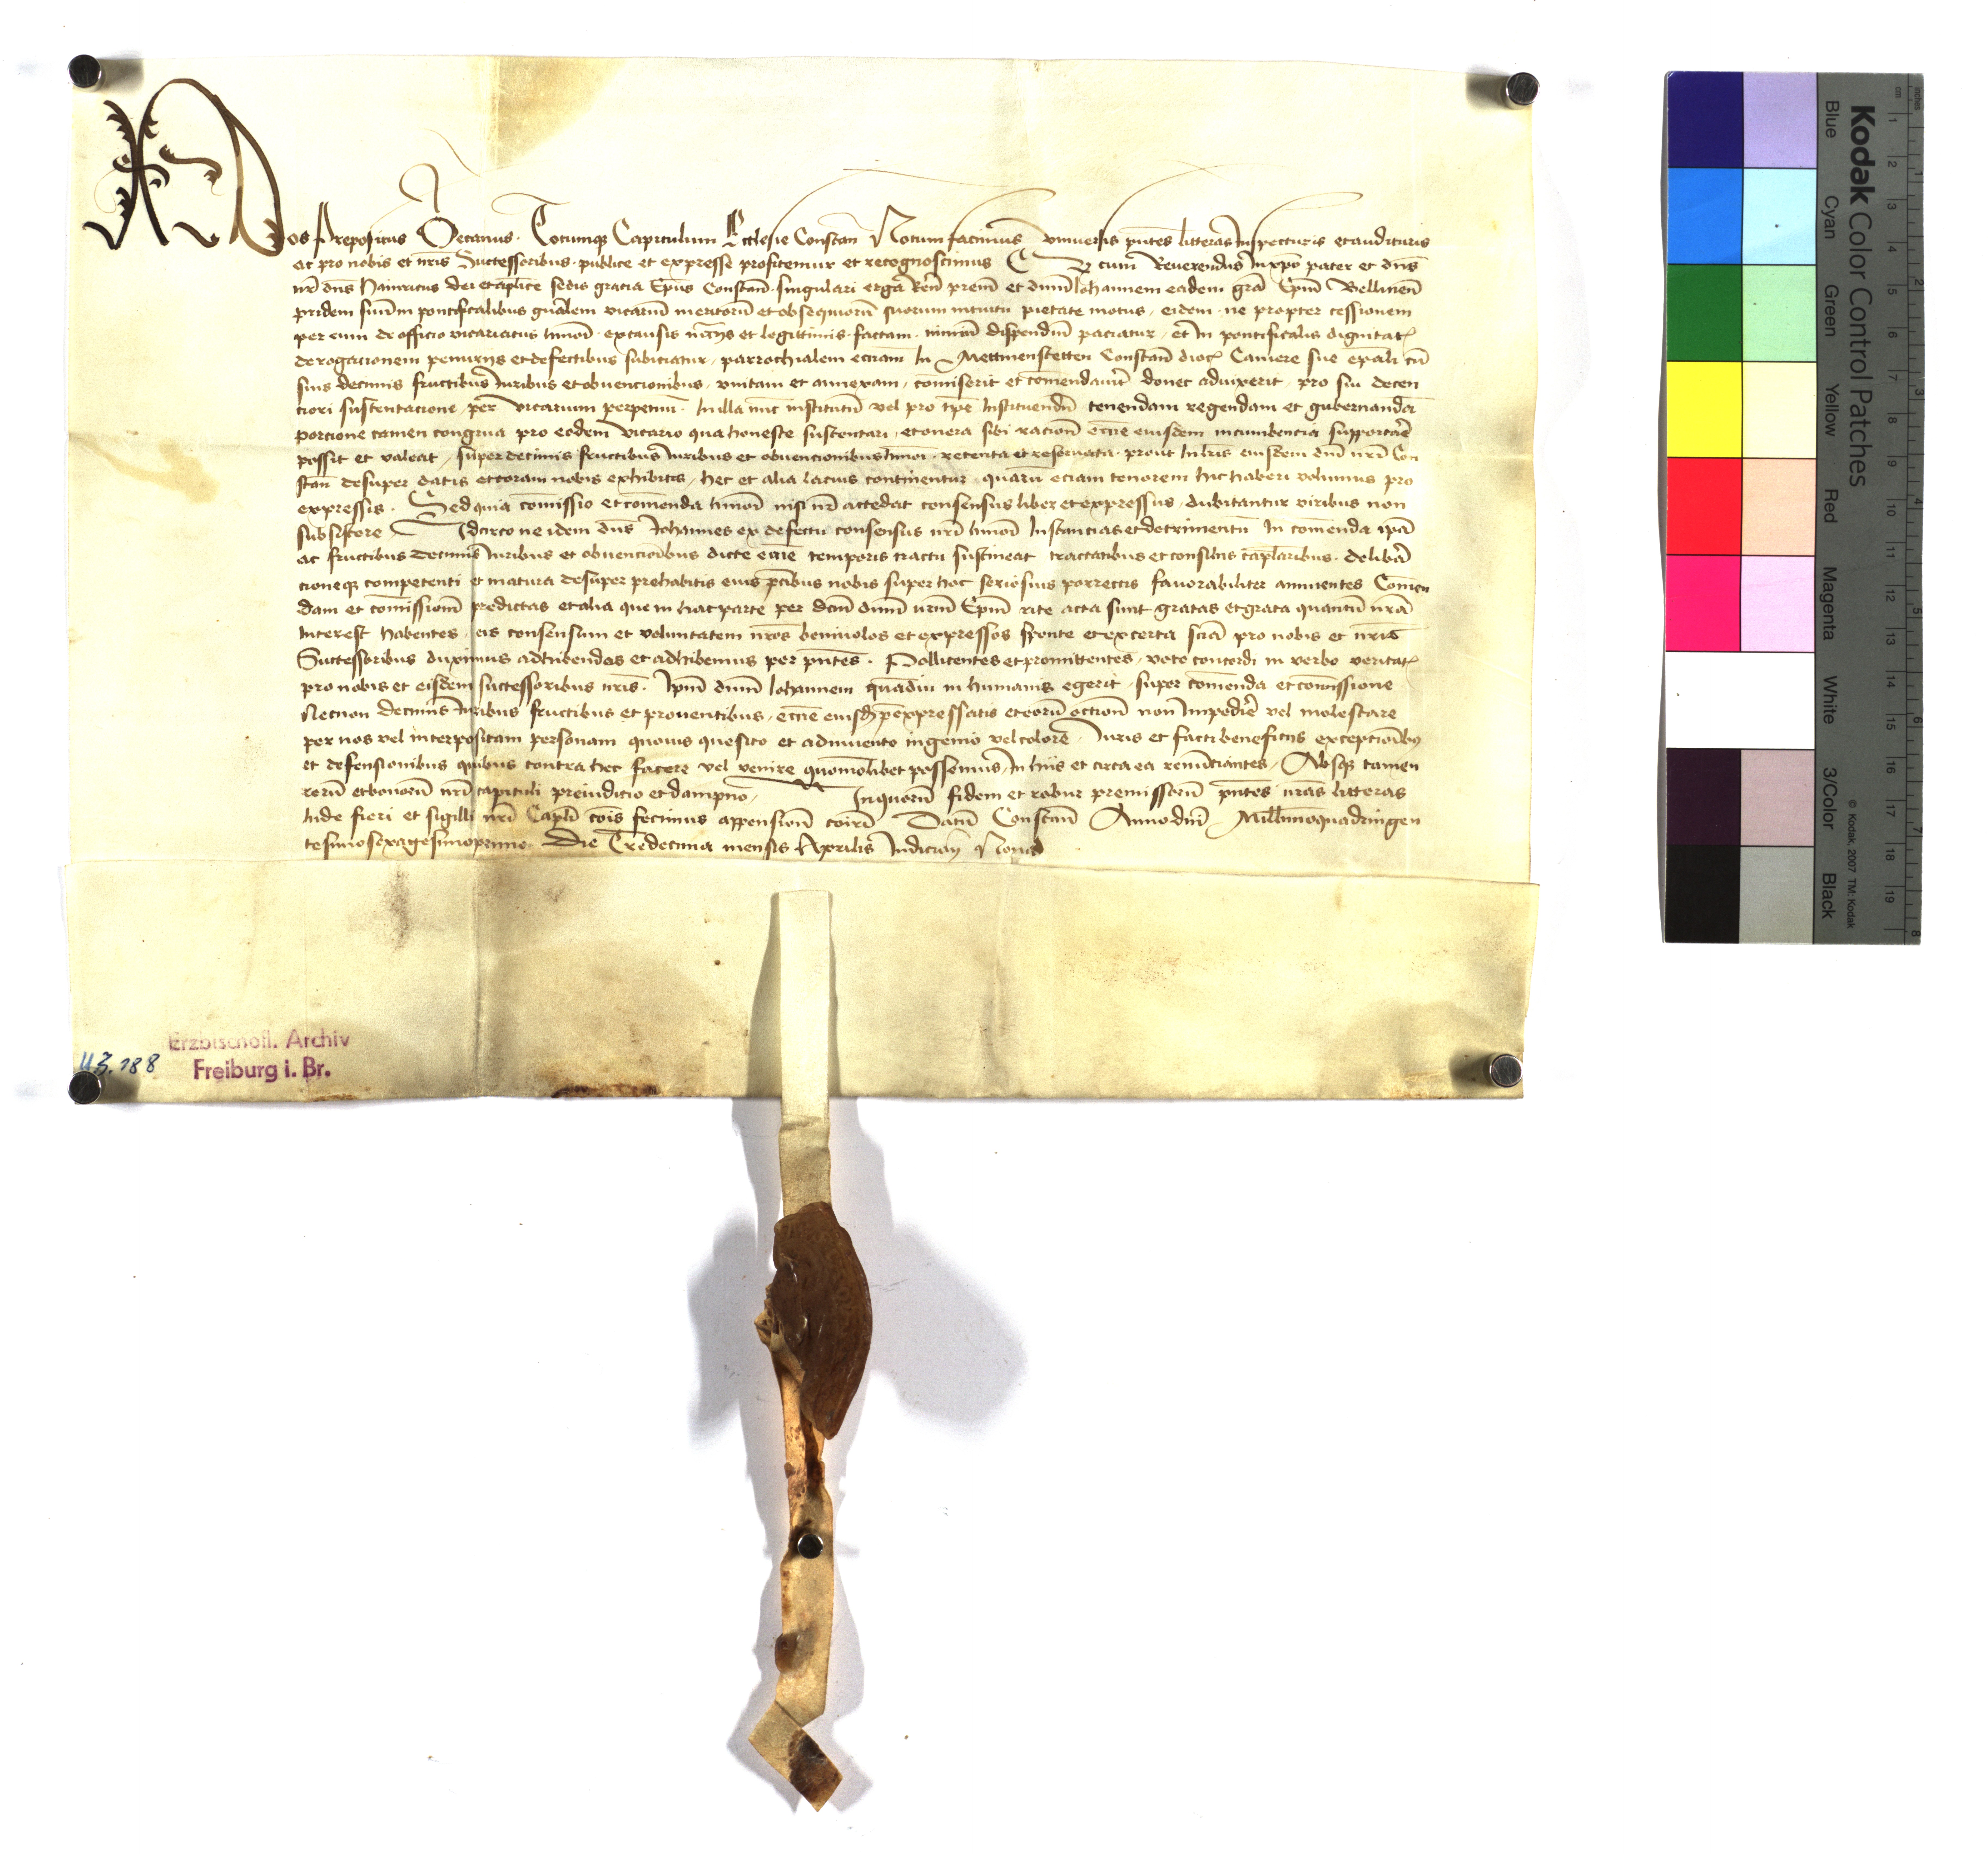 Nos Prepositus Decanus Totumq Capitulum Ecclesie Constan Notum facimus vniuersis pntes litteras Inspecturis et audituris
ac pro nobis et nris Successoribus publice et expresse profitemur et recognoscimus Cum Reuerendus In xpo pater et dns
nr dns Hainricus dei et aplice sedis gracia Epus Constan singulari erga Ren prem et dnm Iohannem eadem gra Epm Bellinen
pridem suum in pontificalibus gnalem vicarium meritoru et obsequioru suorum intuitu pietate motus eidem ne propter cessionem
per eum de officio vicariatus hmoi ex causis et legittimis factam nimiu dispendiu paciatur et In pontificalis dignitat
derogacionem penurys et defectibus subiciatur parrochialem eciam In Mettmenstetten Constan dioc Camere sue epali cu
suis decimis fructibus Iuribus et obuencionibus vnitam et annexam comiserit et comendauit donec aduixerit pro sui decen
tiori sustentacione per vicarium perpetuu In illa nuc institutu vel pro tpe Instituendu tenendam regendam et gubernanda
porcione tamen congrua pro eodem vicario qua honeste sustentari et onera sibi racion eccie eiusdem incumbencia supportare
possit et valeat super decimis fructibus Iuribus et obuencionibus hmoi retenta et reseruata prout In lris eiusdem dni nri Con
stan desuper datis et coram nobis exhibitis hec et alia lacius continentur quaru eciam tenorem hic haberi volumus pro
expressis Sed quia comissio et comenda hmoi nisi nr accedat consensus liber et expressus dubitantur viribus non
subsistere Idcirco ne idem dns Iohannes ex defectu consensus nri hmoi Instancias et detrimentu In comenda ipa
ac fructibus decimis Iuribus et obuencioibus dicte eccie temporis tractu sustineat tractatibus et consilys caplaribus delibera
cioneq competenti et matura desuper prehabitis eius pcibus nobis super hoc seriosius porrectis fauorabiliter annuentes Comen
dam et comission predictas et alia que in hac parte per dcm dnm nrm Epm rite acta sunt gratas et grata quantu nra
Interest habentes eis consensum et voluntatem nros beniuolos et expressos sponte et ex certa scia pro nobis et nris
Successoribus duximus adhibendos et adhibemus per pntes Pollicentes et promittentes voto concordi in verbo veritat
pro nobis et eisdem successoribus nris Ipm dnm Iohannem quadiu in humanis egerit super comenda et comissione
Necnon decimis Iuribus fructibus et prouentibus eccie eiusd pexpressatis et eoru non Impedire vel molestare
per nos vel interpositam personam quouis quesito et adinuento ingenio vel colore Iuris et facti beneficys exceptioibus
et defensionibus quibus contra hec facere vel venire quomolibet possemus In hiis et circa ea renunciantes Absq tamen
reru et bonoru nri capituli preiudicio et dampno In quoru fidem et robur premissoru pntes nras litteras
Inde fieri et sigilli nri Capli cois fecimus appension coiri Datu Constan Anno dni Millimoquadringen
tesimosexagesimoprimo Die Tredecima mensis Aprilis Indicion Nona
Erzbischöfl. Archiv
Freiburg i. Br.
UZ. 188
Kodak Color Control Patches
Blue Cyan Green Yellow Red Magenta White 3/Color Black
© Kodak, 2007 TM: Kodak
cm 1 2 3 4 5 6 7 8 9 10 11 12 13 14 15 16 17 18 19
inches 1 2 3 4 5 6 7 8